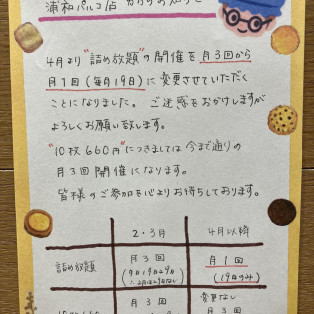 浦和パルコ店 からのお知らせ
4月より"詰め放題"の開催を月3回から
月1回(毎月19日)に変更させていただく
ことになりました。ご迷惑をおかけしますが
よろしくお願い致します。
"10枚660円"につきましては今まで通りの
月3回開催になります。
皆様のご参加を心よりお待ちしております。
2・3月 4月以降
詰め放題 月3回 月1回
(19日のみ)
月3回 変更なし
月3回